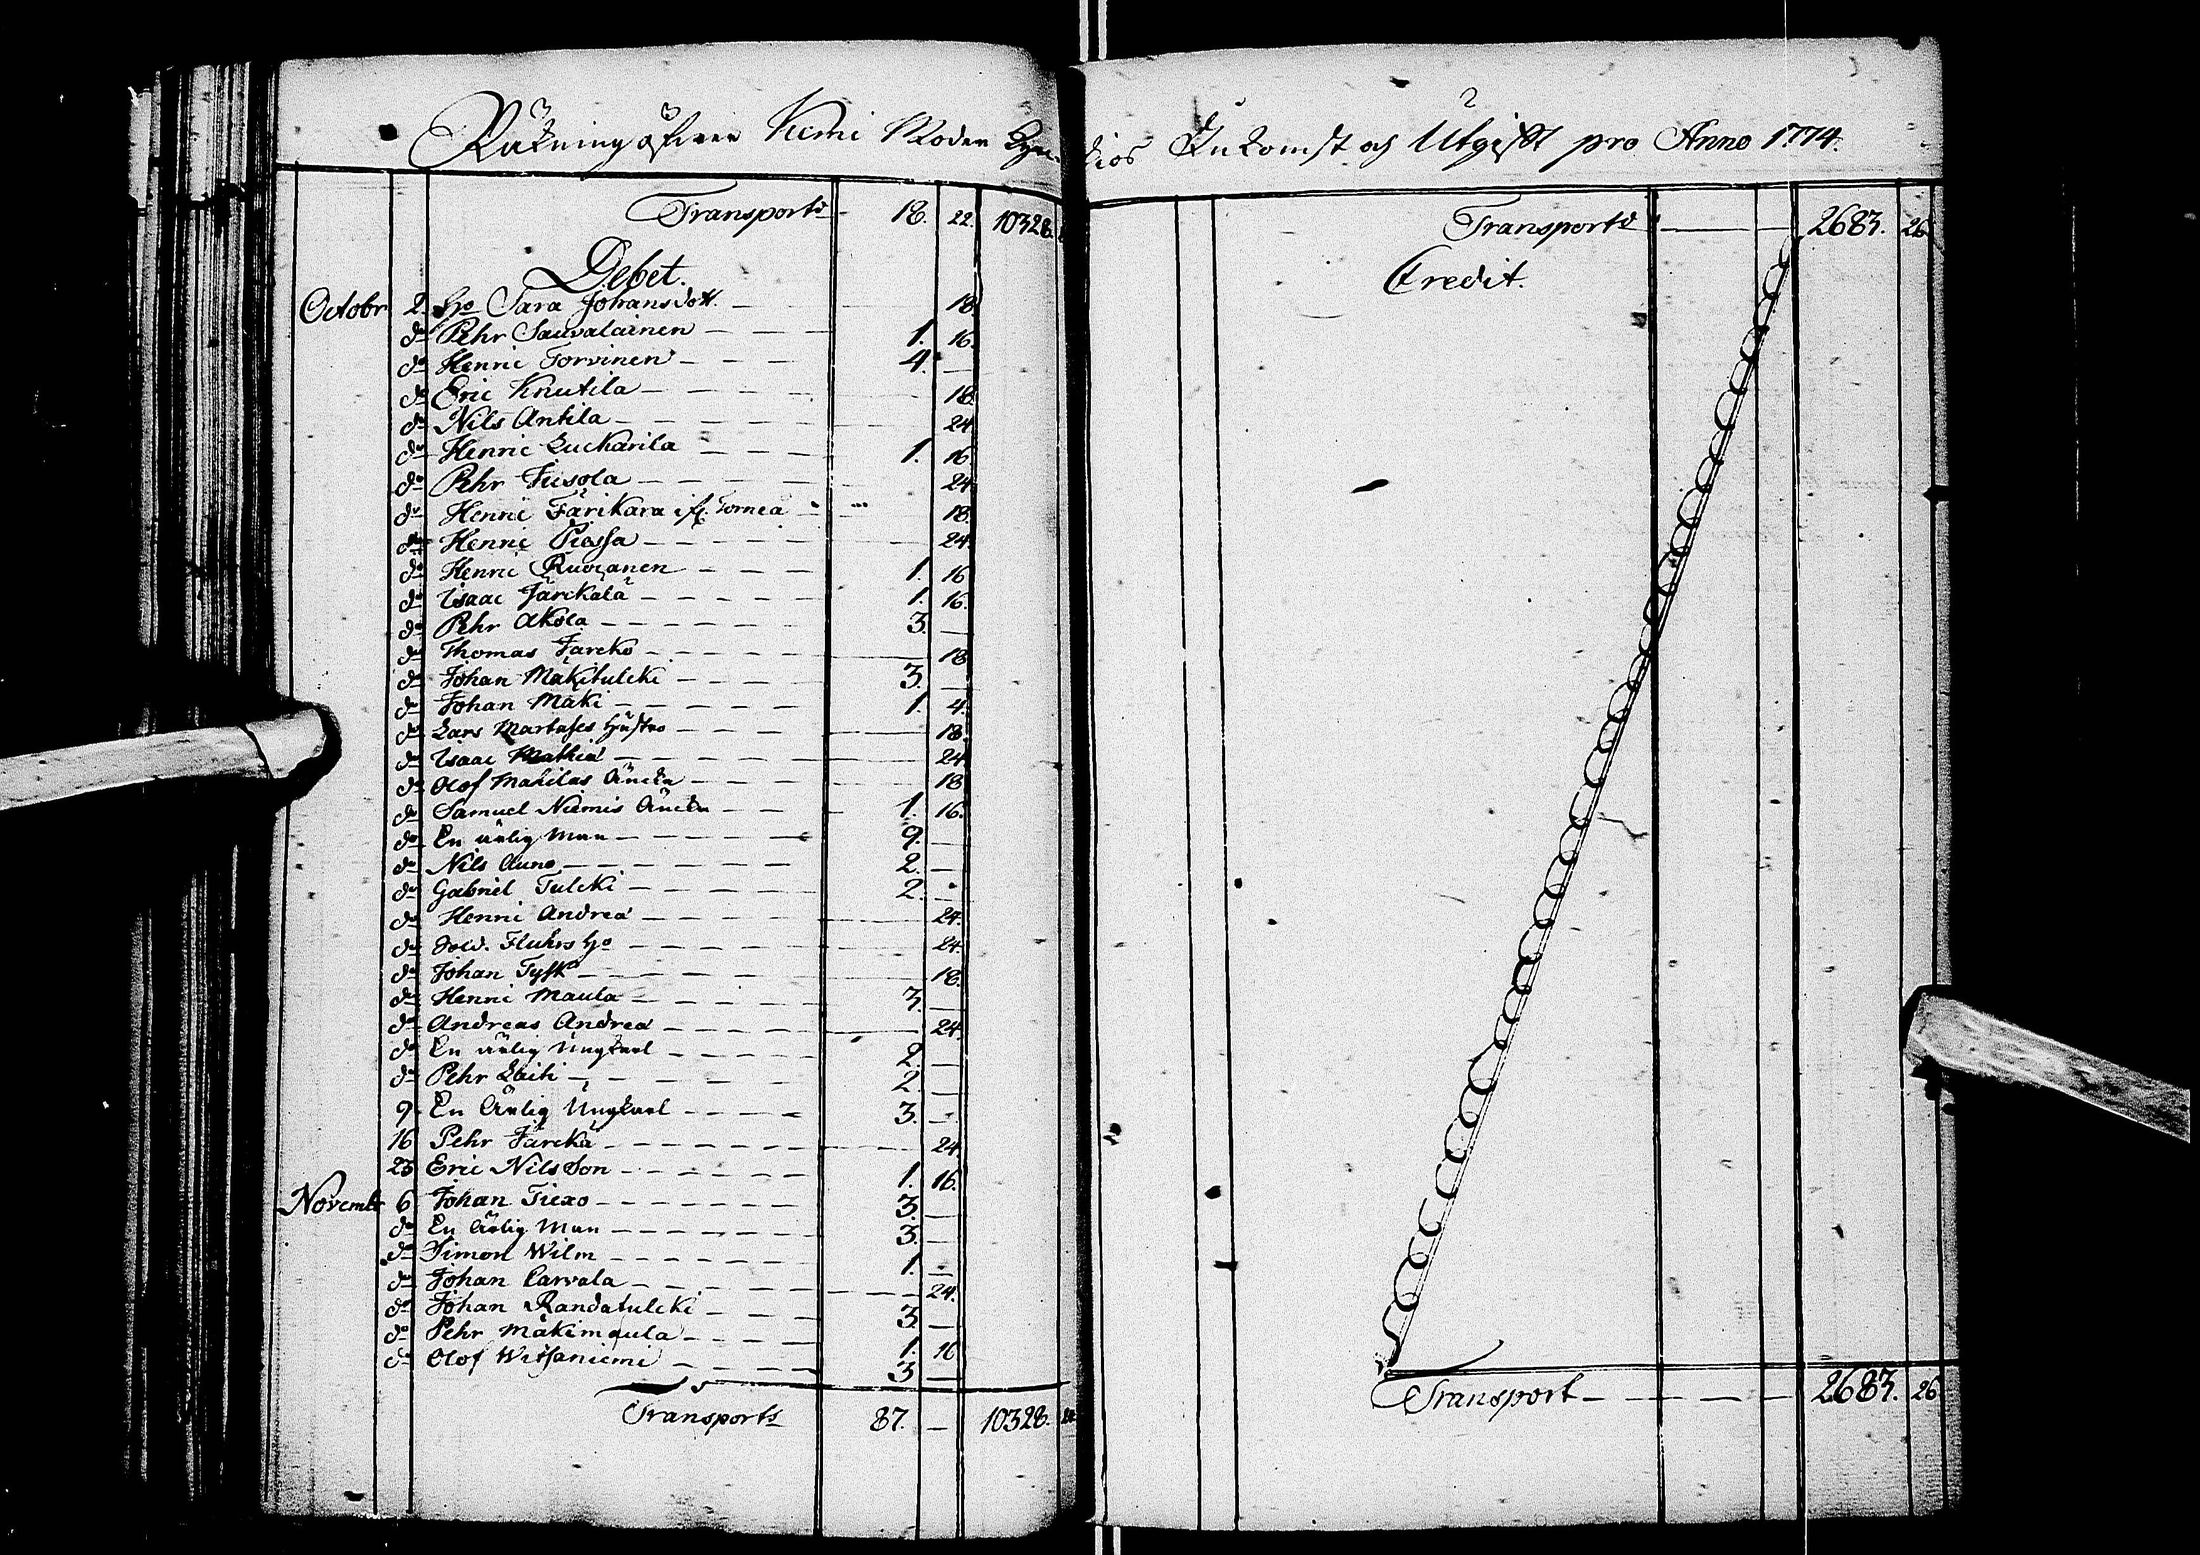 Räkning öfwer Kemi Moder Kyrkios Inkomst och Utgift pro Anno 1774.
Transport 18. 22. 10328.
Debet.
Octobr 2. Ho Sara Johansdott. 18
do Pehr Sauvalainen 1. 16.
do Henric Torvinen 4.
do Eric Knutila 18.
do Nils Antila 24
do Henric Luckarila 1. 16
do Pehr Jusola 24
do Henric Färikara ifr. Tornea 18.
do Henric Piessa 24.
do Henric Ruoianen 1. 16
do Isaac Järckälä 1. 16.
do Pehr Akola 3.
do Thomas Jareko 18.
do Johan Mäkitulcki 3.
do Johan Mäki 1. 4.
do Lars Martuses Hustro 18.
do Isaac Mathia 24
do Olof Makilas Äncka 18
do Samuel Niemis Äncka 1. 16.
do En ärlig Man 9.
do Nils Auno 2.
do Gabriel Tulcki 2.
do Henric Andrea 24.
do Sold. Fluhrs Ho 24.
do Johan Tysk 18.
do Henric Maula 3.
do Andreas Andrea 24.
do En ärlig Ungkarl 2.
do Pehr Laiti 2.
9. En Ärlig Ungkarl 3.
16 Pehr Järckä 24
23 Eric Nilsson 1. 16.
Novembr 6 Johan Tiexo 3.
do En Ärlig Man 3.
do Simon Wilm 1.
do Johan Parvala 24.
do Johan Randatulcki 3.
do Pehr Mäkimaula 1. 16
do Olof Witsaniemi 3
Transport 87. 10328.
Transport 2683. 26
Credit.
Transport 2683. 26